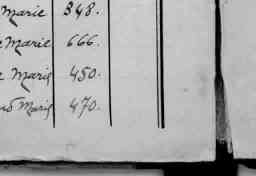 Marie 348.
Marie 666.
Marie 450.
Marie 470.